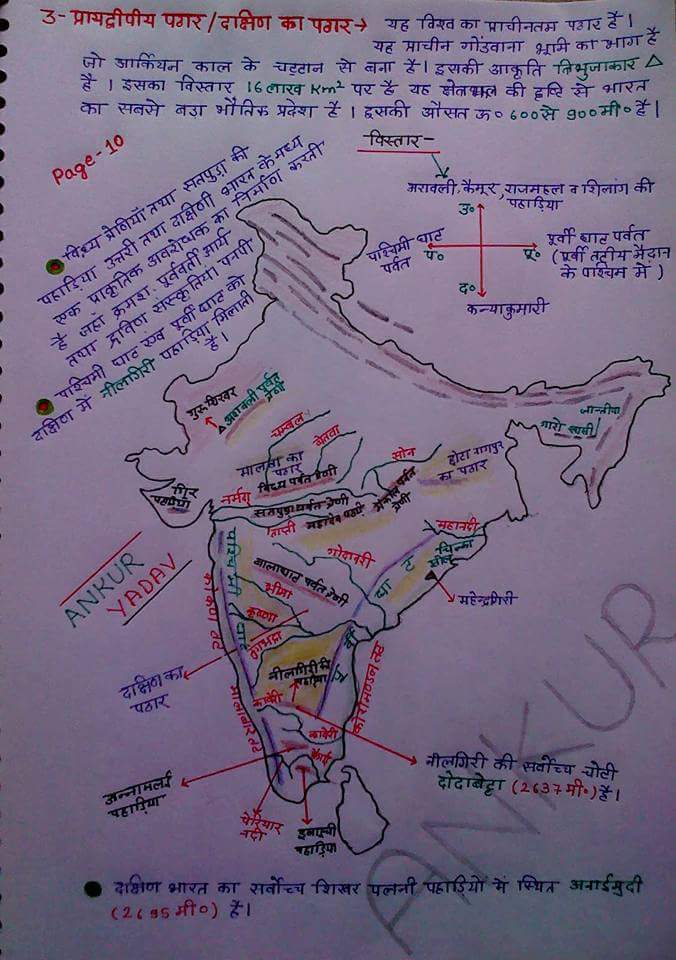 3- प्रायद्वीपीय पठार/दक्षिण का पठार→ यह विश्व का प्राचीनतम पठार है।
यह प्राचीन गोंडवाना भूमि का भाग है
जो आर्कियन काल के चट्टान से बना है। इसकी आकृति त्रिभुजाकार △
है। इसका विस्तार 16 लाख Km² पर है यह क्षेत्रफल की दृष्टि से भारत
का सबसे बड़ा भौतिक प्रदेश है। इसकी औसत ऊ० 600 से 900 मी० है।
Page-10
विस्तार-
अरावली, कैमूर, राजमहल व शिलांग की
पहाड़िया
उ०
पश्चिमी घाट
पर्वत
प०
पू०
पूर्वी घाट पर्वत
(पूर्वी तटीय मैदान
के पश्चिम में)
द०
कन्याकुमारी
विन्ध्य श्रेणियाँ तथा सतपुड़ा की
पहाड़िया उत्तरी तथा दक्षिणी भारत के मध्य
एक प्राकृतिक अवरोधक का निर्माण करती
है जहां क्रमशः पूर्ववर्ती आर्य
तथा द्रविण संस्कृतियां पनपी
पश्चिमी घाट एंव पूर्वी घाट को
दक्षिण में नीलगिरी पहाड़िया मिलाती
है।
गुरुशिखर
अरावली पर्वत
श्रेणी
चम्बल
बेतवा
सोन
मालवा का
पठार
विंध्य पर्वत श्रेणी
छोटा नागपुर
का पठार
जान्तीया
गारो खासी
गिर
पहाड़िया
नर्मदा
सतपुड़ा पर्वत श्रेणी
मैकाल पर्वत
श्रेणी
ताप्ती
महादेव पहाड़ी
महानदी
चिल्का
झील
गोदावरी
बालाघाट पर्वत श्रेणी
पश्चिमी घाट
भीमा
कृष्णा
तुंगभद्रा
पूर्वी घाट
महेन्द्रगिरी
ANKUR
YADAV
कोंकण तट
दक्षिण का
पठार
नीलगिरी की
पहाड़िया
कोरोमण्डल तट
मालाबार तट
कावेरी
कावेरी
नीलगिरी की सर्वोच्च चोटी
दोदाबेट्टा (2637 मी०) है।
अन्नामलई
पहाड़िया
पेरियार
नदी
इलायची
पहाड़िया
ANKUR
दक्षिण भारत का सर्वोच्च शिखर पलनी पहाड़ियों में स्थित अनाईमुदी
(2695 मी०) है।